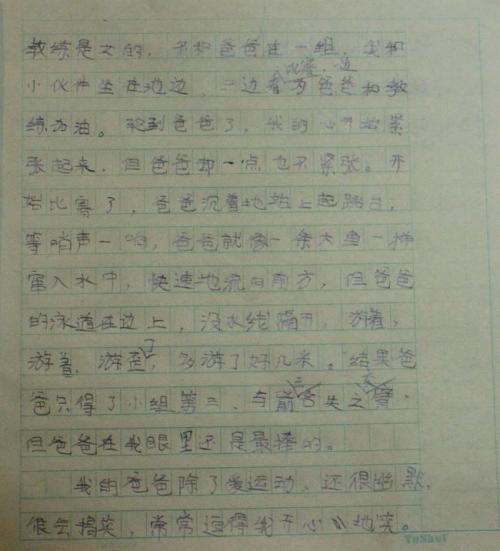 教练是女的，不和爸爸在一组，我和
小伙伴坐在池边，一边看比赛，一边为爸爸和教
练加油。轮到爸爸了，我的心开始紧
张起来，但爸爸却一点也不紧张。开
始比赛了，爸爸沉着地站上起跳台，
等哨声一响，爸爸就像一条大鱼一样
窜入水中，快速地流向前方，但爸爸
的泳道在边上，没水线隔开，游着，
游着，游歪了，多游了好几米。结果爸
爸只得了小组第二，与前三失之交臂，
但爸爸在我眼里还是最棒的。
我的爸爸除了爱运动，还很幽默，
很会搞笑，常常逗得我开心地笑。